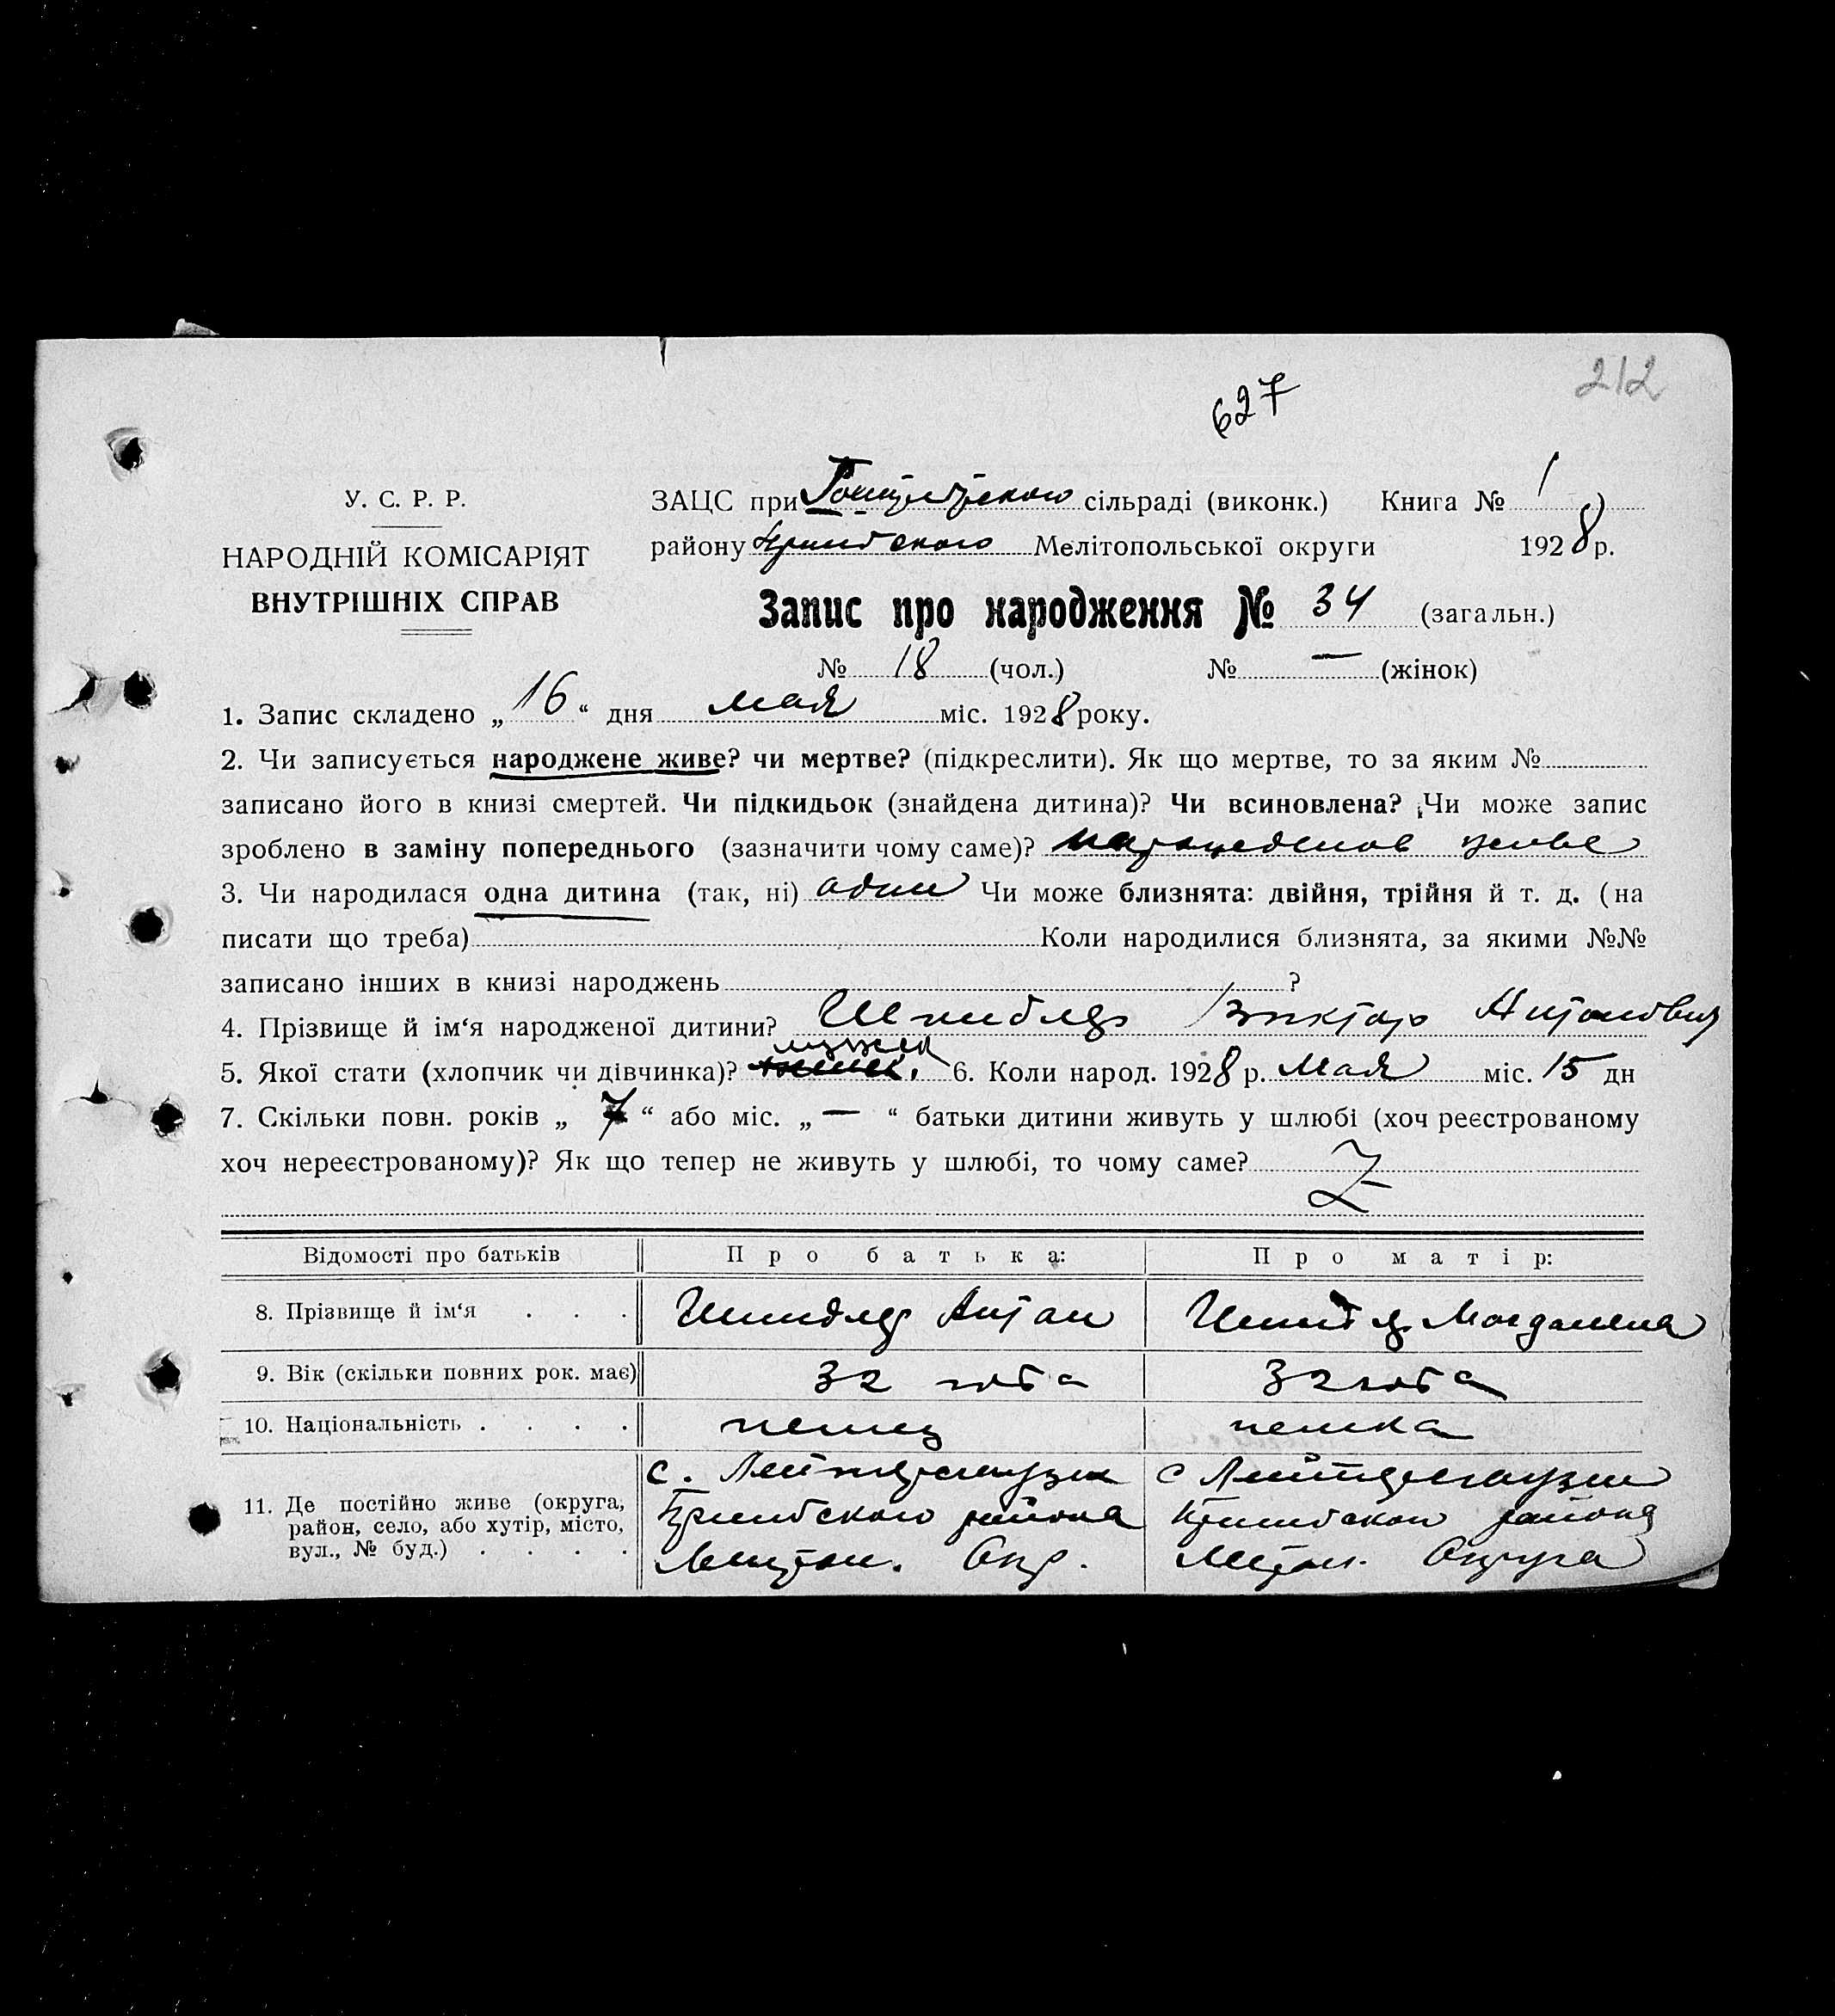 212
627
У. С. Р. Р.
НАРОДНІЙ КОМІСАРІЯТ
ВНУТРІШНІХ СПРАВ
ЗАЦС при сільраді (виконк.) Книга № 1
району Мелітопольської округи 1928 р.
Запис про народження № 34 (загальн.)
№ 18 (чол.) № — (жінок)
1. Запис складено „ 16 “ дня мая міс. 1928 року.
2. Чи записується народжене живе? чи мертве? (підкреслити). Як що мертве, то за яким №
записано його в книзі смертей. Чи підкидьок (знайдена дитина)? Чи всиновлена? Чи може запис
зроблено в заміну попереднього (зазначити чому саме)?
3. Чи народилася одна дитина (так, ні) один Чи може близнята: двійня, трійня й т. д. (на
писати що треба) Коли народилися близнята, за якими №№
записано інших в книзі народжень ?
4. Прізвище й ім‘я народженої дитини? Шнидлер Виктор Антонович
5. Якої стати (хлопчик чи дівчинка)? мужск 6. Коли народ. 1928 р. Мая міс. 15 дн
7. Скільки повн. років „ 7 “ або міс. „ — “ батьки дитини живуть у шлюбі (хоч реєстрованому
хоч нереєстрованому)? Як що тепер не живуть у шлюбі, то чому саме?
Відомості про батьків Про батька: Про матір:
8. Прізвище й ім‘я . . . Шнидлер Антон Магдалена
9. Вік (скільки повних рок. має) 32 года 32 года
10. Національність . . . . немец немка
11. Де постійно живе (округа, район, село, або хутір, місто, вул., № буд.) . . . .
с.
района
Окр.
с
района
Округа